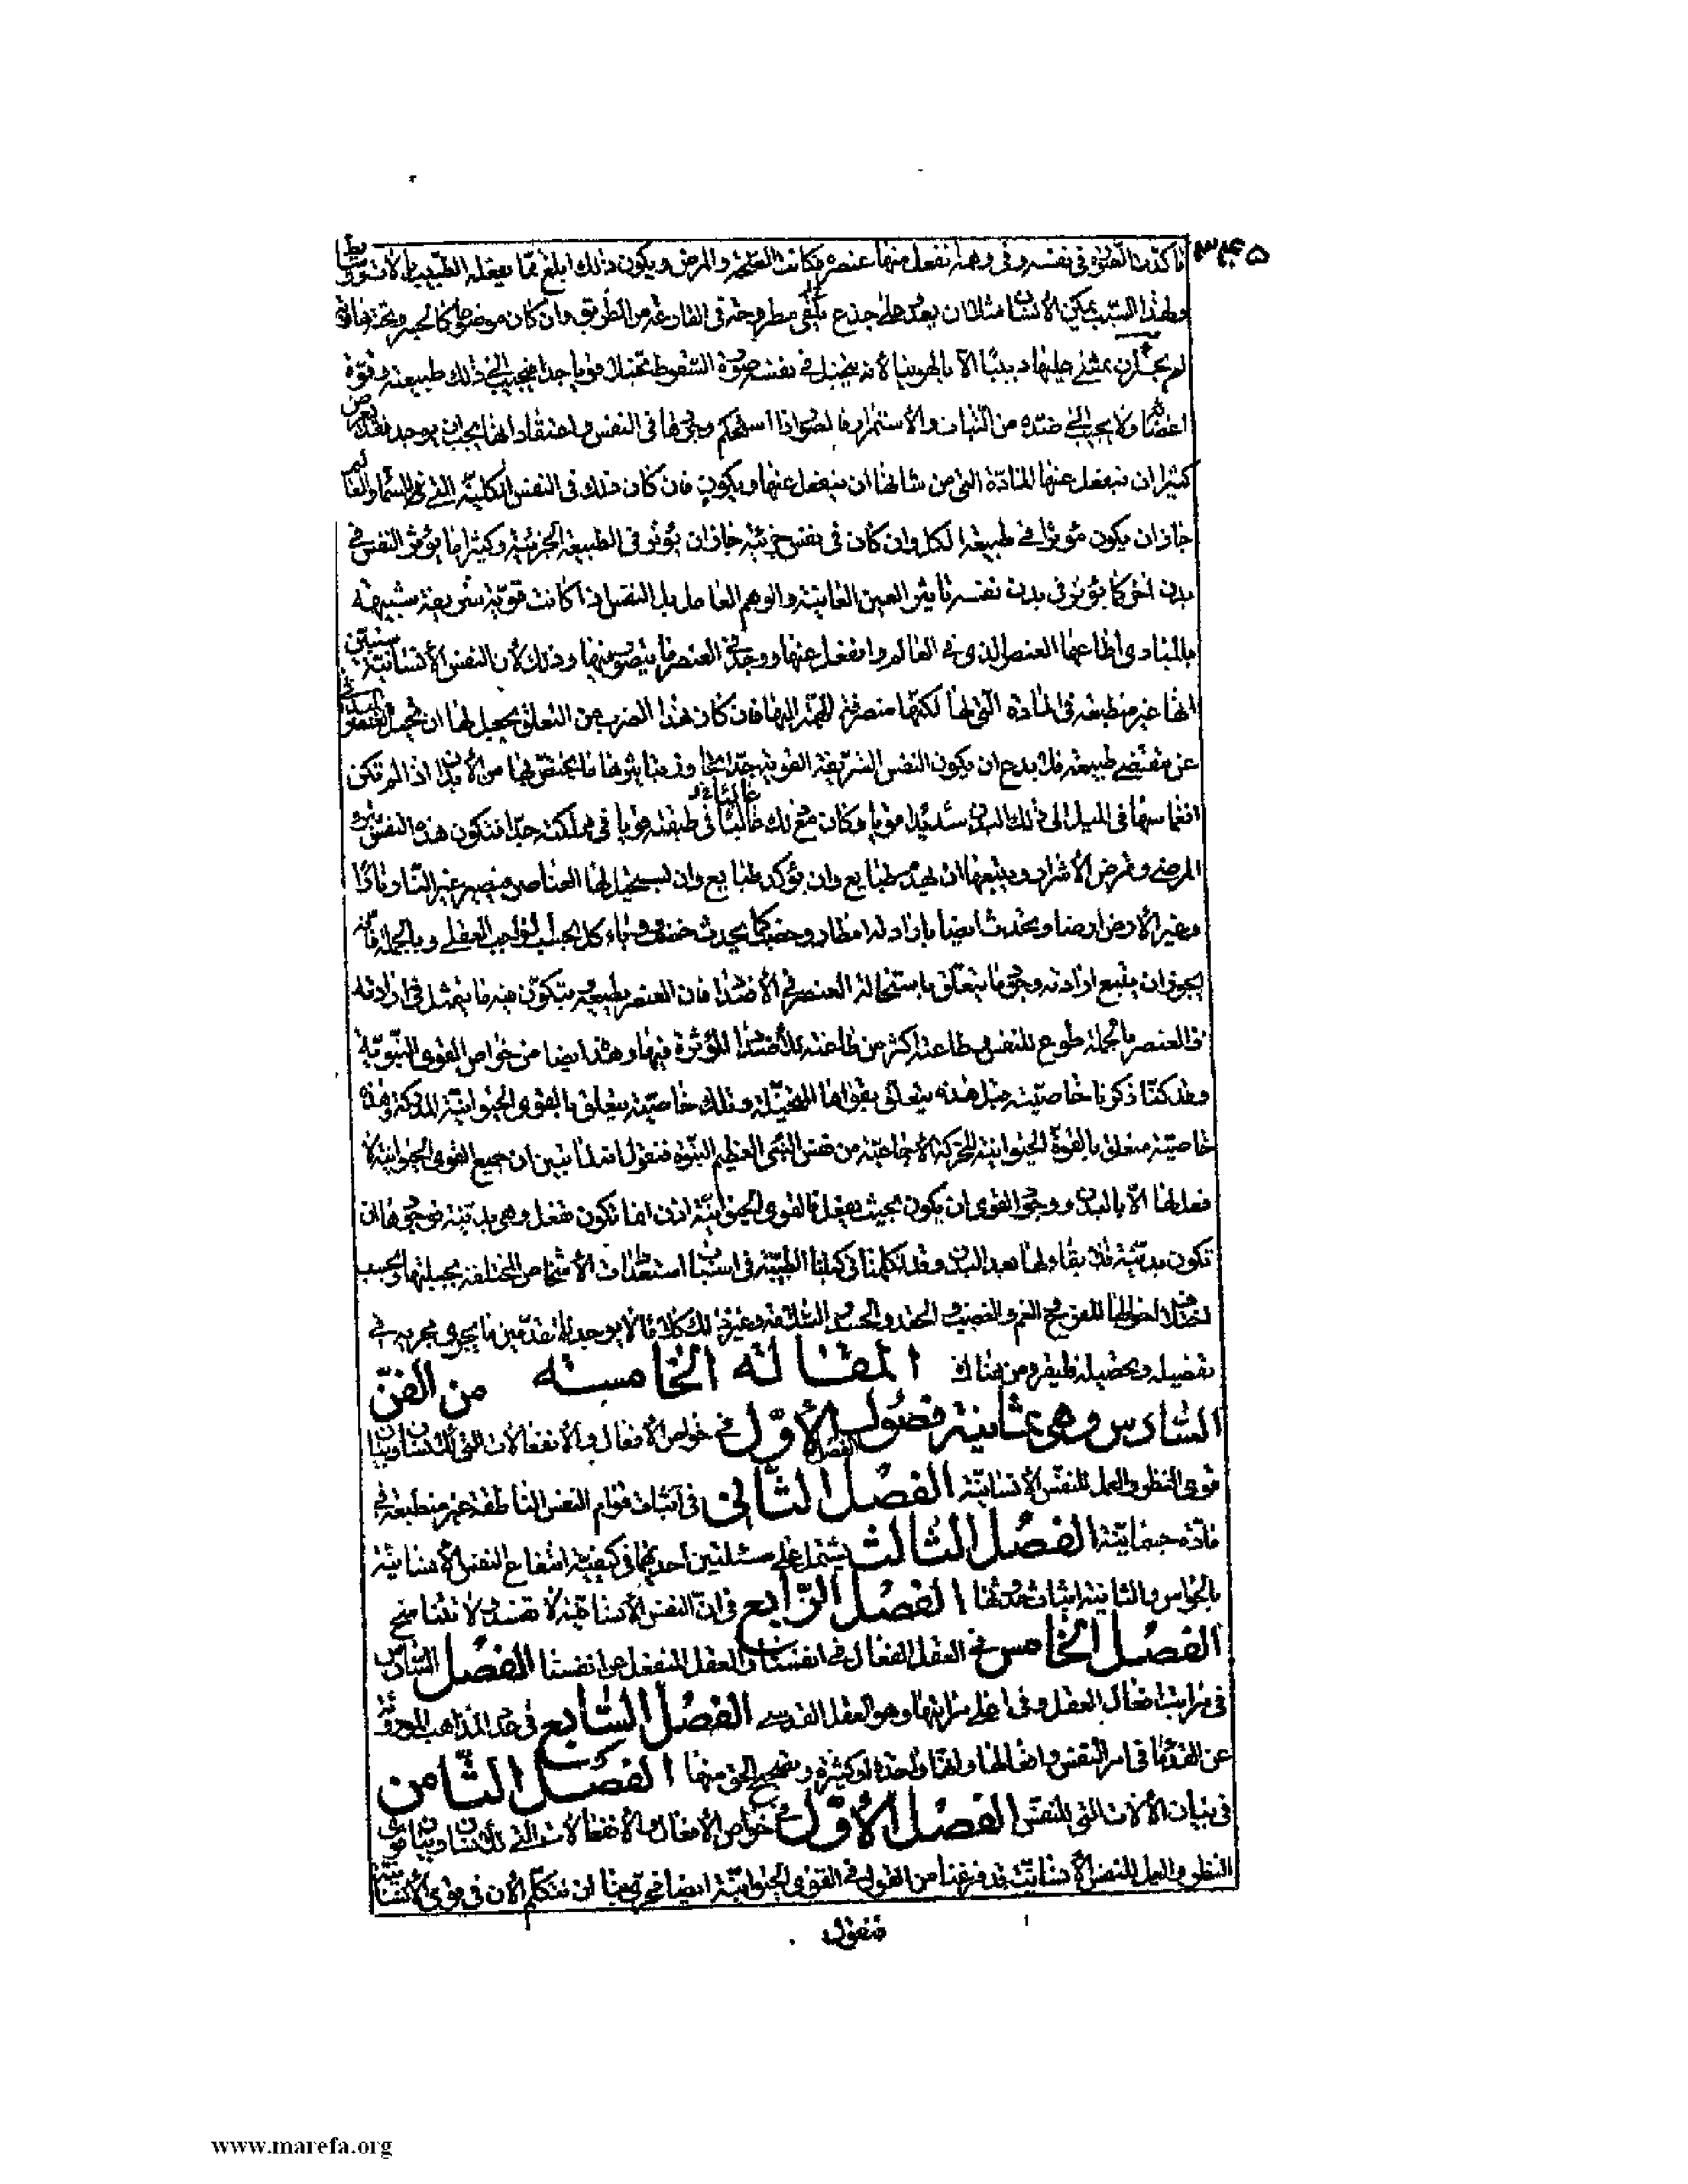 ٣٤٥
تأكدت الصورة في نفسه وفي وهمه انفعل منها عنصره فكانت الصحة والمرض ويكون ذلك ابلغ مما يفعله الطبيب بالات ووسايط
ولهذا السبب يمكن الانسان مثلا ان يعدو على جذع يلقى مطروحة في القارعة من الطريق وان كان موضوعا كالجسر وتحته هاوية
لم يجسر ان يمشي عليها دبيبا الا بالهوينا لانه يتخيل في نفسه صورة السقوط تخيلا قويا جدا فتجيب الى ذلك طبيعته وقوة
اعضائه ولا يجيب الى ضده من الثبات والاستمرار فالصور اذا استحكم وجودها في النفس واعتقاد انها يجب ان يوجد فقد يعرض
كثيرا ان ينفعل عنها المادة التي من شانها ان ينفعل عنها ويكون فان كان ذلك في النفس الكلية التي للسماء والعالم
جاز ان يكون مؤثرا في طبيعة الكل وان كان في نفس جزئية جاز ان يؤثر في الطبيعة الجزئية وكثيرا ما يؤثر النفس في
بدن اخر كما يؤثر في بدن نفسه تاثير العين العاينة والوهم العامل بل النفس اذا كانت قوية شريفة شبيهة
بالمبادي اطاعها العنصر الذي في العالم وانفعل عنها ووجد في العنصر ما يتصور فيها وذلك لان النفس الانسانية سنبين
انها غير منطبعة في المادة التي لها لكنها منصرفة الهمة اليها فان كان هذا الضرب من التعلق يجعل لها ان تحيل العنصر البدني
عن مقتضى طبيعته فلا بدع ان يكون النفس الشريفة القوية جدا تجاوز بتاثيرها ما يختص بها من الابدان اذا لم تكن
انغماسها في الميل الى ذلك البدن شديدا قويا وكان مع ذلك غالبا في طبقته قويا في ملكته جدا فتكون هذه النفس تبرء
المرضى وتمرض الاشرار ويتبعها ان يهدم طبايع وان يؤكد طبايع وان يستحيل لها العناصر فيصير غير النار نارا
وغير الارض ارضا ويحدث ايضا بارادته امطار وخصب كما يحدث خسف ووباء كل بحسب الواجب العقلي وبالجملة فانه
يجوز ان يتبع ارادته وجود ما يتعلق باستحالة العنصر في الاضداد فان العنصر يطيعه ويتكون فيه ما يتمثل في ارادته
فالعنصر بالجملة طوع للنفس وطاعته اكثر من طاعته للاضداد المؤثرة فيها وهذه ايضا من خواص القوى النبوية
وقد كنا ذكرنا خاصية قبل هذه يتعلق بقواها المتخيلة وتلك خاصية يتعلق بالقوى الحيوانية المدركة وهذه
خاصية متعلق بالقوة الحيوانية المحركة الاجماعية من نفس النبي العظيم النبوة فنقول انه لما تبين ان جميع القوى الحيوانية لا
فعل لها الا بالبدن ووجود القوى ان يكون بحيث يفعل فالقوى الحيوانية اذن انما تكون تفعل وهي بدنية فوجودها ان
تكون بدنية فلا بقاء لها بعد البدن وقد تكلمنا في كتبنا الطبية في اسباب استعدادات الاشخاص المختلفة بجبلتها وبحسب
اختلاف احوالها للفرح والغم والغضب والحقد والحسد والسلاقة وغير ذلك كلاما لا يوجد للمتقدمين ما يجري مجراه في
تفصيله وتحصيله فليقرء من هناك المقالة الخامسة من الفن
السادس وهي ثمانية فصول الفصل الاول في خواص الافعال والانفعالات التي للانسان وبيان
قوى النظر والعمل للنفس الانسانية الفصل الثاني في اثبات قوام النفس الناطقة غير منطبعة في
مادة جسمانية الفصل الثالث يشتمل على مسئلتين احديهما في كيفية انتفاع النفس الانسانية
بالحواس والثانية اثبات حدوثها الفصل الرابع في ان النفس الانسانية لا تفسد ولا تتناسخ
الفصل الخامس في العقل الفعال في انفسنا والعقل المنفعل عن انفسنا الفصل السادس
في مراتب افعال العقل وفي اعلى مراتبها وهو العقل القدسي الفصل السابع في عد المذاهب الموروثة
عن القدماء في امر النفس وافعالها وانها واحدة او كثيرة وتصحيح الحق منها الفصل الثامن
في بيان الالات التي للنفس الفصل الاول في خواص الافعال والانفعالات التي للانسان وبيان قوى
النظر والعمل للنفس الانسانية قد فرغنا من القول في القوى الحيوانية ايضا فحري بنا ان نتكلم الان في قوى الانسانية
فنقول
www.marefa.org